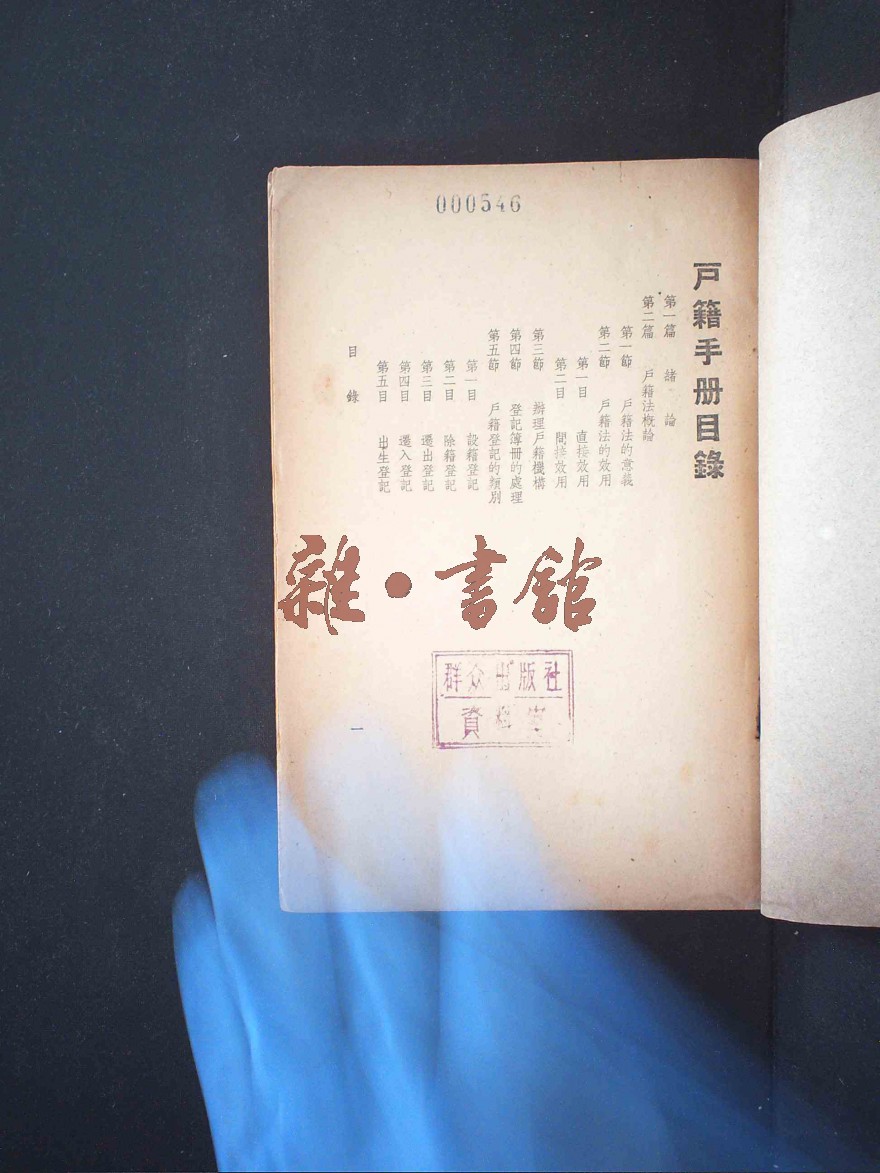 000546
戸籍手册目錄
第一篇 緒論
第二篇 戸籍法槪論
第一節 戸籍法的意義
第二節 戸籍法的效用
第一目 直接效用
第二目 間接效用
第三節 辦理戸籍機構
第四節 登記簿冊的處理
第五節 戸籍登記的類別
第一目 設籍登記
第二目 除籍登記
第三目 遷出登記
第四目 遷入登記
第五目 出生登記
目錄
一
雜·書館
群众出版社
資料室